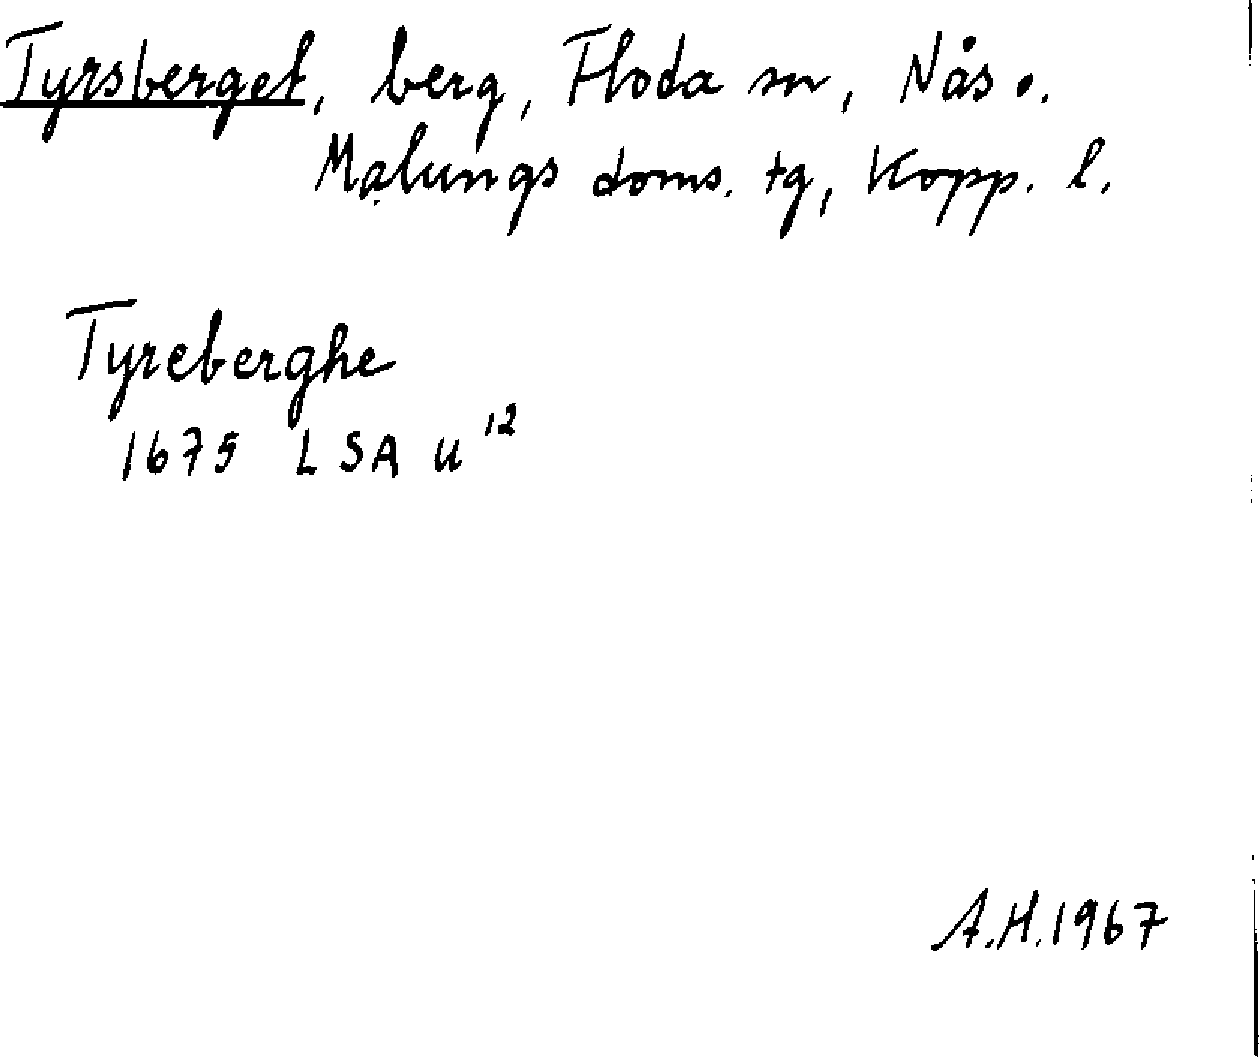 Tyrsberget, berg, Floda sn, Nås o.
Malungs doms. tg, Kopp. l.
Tyreberghe
1675 LSA U 12
A.H. 1967